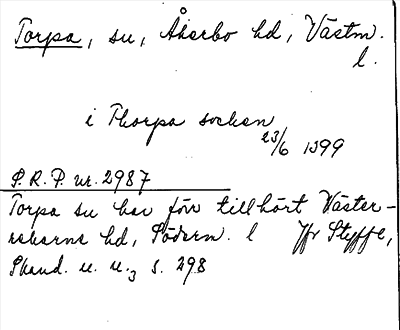 Torpa, sn, Åkerbo hd, Västm.
l.
i Thorpa socken
23/6 1399
P.R.P. nr. 2987
Torpa sn har förr tillhört Väster-
rekarne hd, Söderm. l Jfr Styffe,
Skand. u. u.3 s. 298